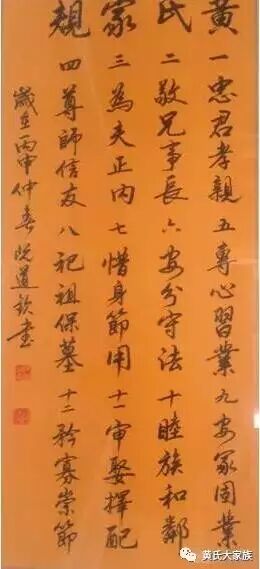 黄氏家規
一忠君孝親 五專心習業 九安家固業
二敬兄事長 六安分守法 十睦族和鄰
三為夫正内 七惜身節用 十一審娶擇配
四尊師信友 八祀祖保墓 十二矜寡崇節
歲在丙申仲春 道書
黄氏大家族